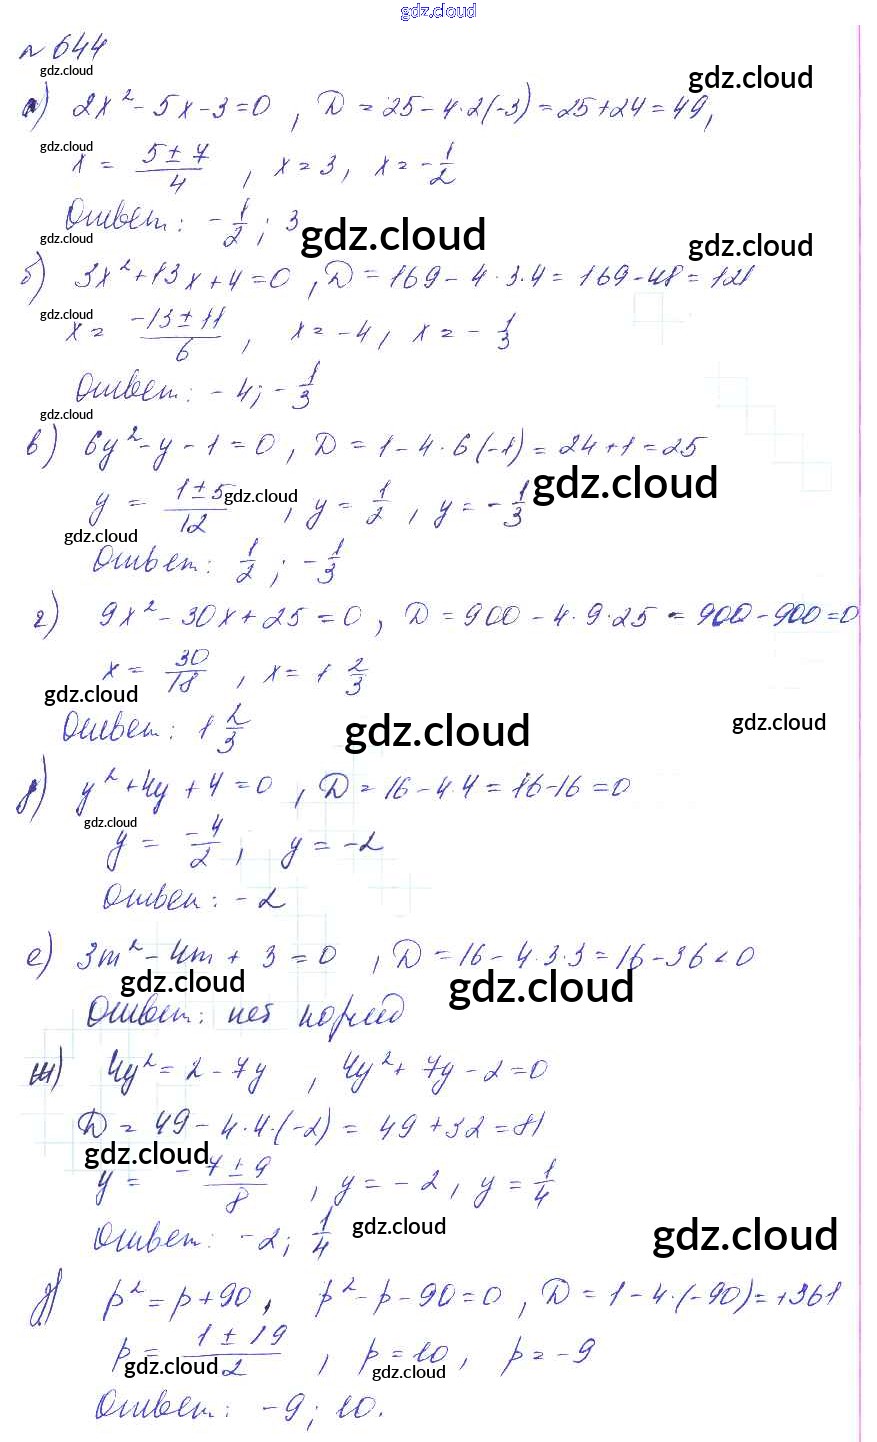 gdz.cloud
№ 644
gdz.cloud
gdz.cloud
а) 2x² - 5x - 3 = 0 , D = 25 - 4·2(-3) = 25 + 24 = 49,
gdz.cloud
x = (5 ± 7)/4 , x = 3, x = - 1/2
Ответ: - 1/2 ; 3
gdz.cloud
gdz.cloud
gdz.cloud
б) 3x² + 13x + 4 = 0 , D = 169 - 4·3·4 = 169 - 48 = 121
gdz.cloud
x = (-13 ± 11)/6 , x = -4, x = - 1/3
Ответ: - 4; - 1/3
gdz.cloud
в) 6y² - y - 1 = 0 , D = 1 - 4·6(-1) = 24 + 1 = 25
gdz.cloud
gdz.cloud
y = (1 ± 5)/12 , y = 1/2 , y = - 1/3
gdz.cloud
Ответ: 1/2 ; - 1/3
г) 9x² - 30x + 25 = 0 , D = 900 - 4·9·25 = 900 - 900 = 0
x = 30/18 , x = 1 2/3
gdz.cloud
Ответ: 1 2/3
gdz.cloud
gdz.cloud
д) y² + 4y + 4 = 0 , D = 16 - 4·4 = 16 - 16 = 0
gdz.cloud
y = -4/2 , y = -2
Ответ: - 2
е) 3m² - 4m + 3 = 0 , D = 16 - 4·3·3 = 16 - 36 < 0
gdz.cloud
gdz.cloud
Ответ: нет корней
ж) 4y² = 2 - 7y , 4y² + 7y - 2 = 0
D = 49 - 4·4·(-2) = 49 + 32 = 81
gdz.cloud
y = (-7 ± 9)/8 , y = - 2, y = 1/4
Ответ: -2; 1/4
gdz.cloud
gdz.cloud
p² = p + 90, p² - p - 90 = 0 , D = 1 - 4·(-90) = +361
p = (1 ± 19)/2 , p = 10, p = -9
gdz.cloud
gdz.cloud
Ответ: -9; 10.